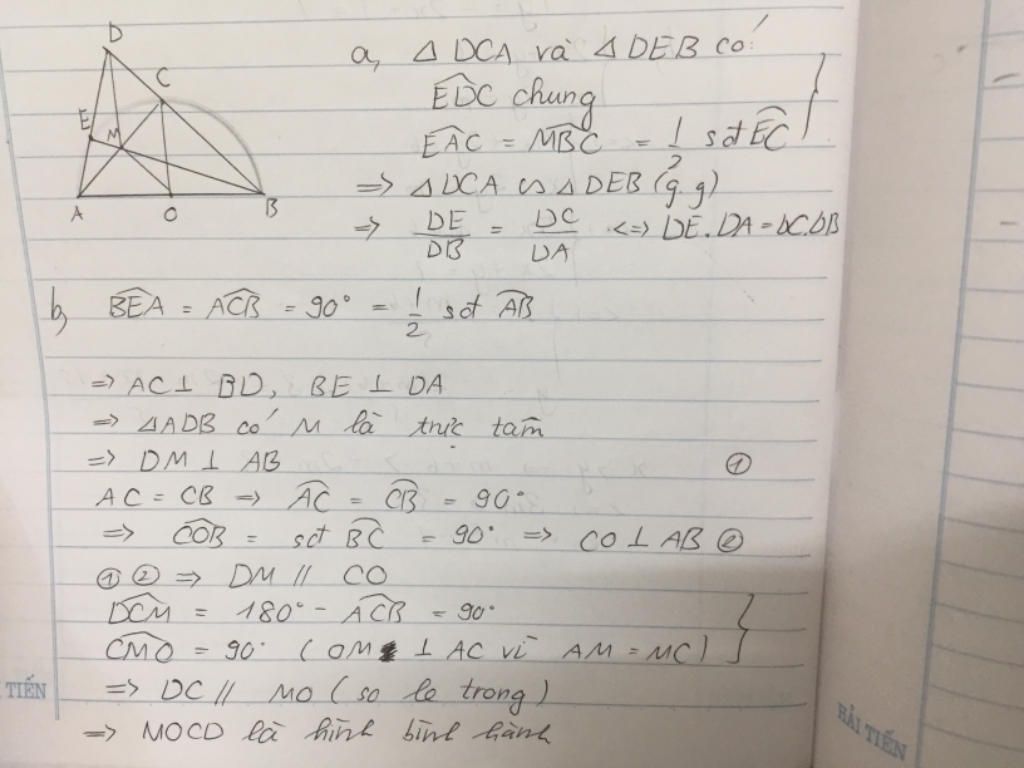 D
C
E
M
A
O
B
a, △ DCA và △ DEB có:
EDC chung
EAC = MBC = 1/2 sđ EC
=> △DCA ∽ △DEB (g.g)
=> DE/DB = DC/DA <=> DE.DA = DC.DB
b, BEA = ACB = 90° = 1/2 sđ AB
=> AC ⊥ BD, BE ⊥ DA
=> △ADB có M là trực tâm
=> DM ⊥ AB ①
AC = CB => AC = CB = 90°
=> COB = sđ BC = 90° => CO ⊥ AB ②
① ② => DM // CO
DCM = 180° - ACB = 90°
CMO = 90° (OM ⊥ AC vì AM = MC)
=> DC // MO (so le trong)
=> MOCD là hình bình hành
TIẾN
HẢI TIẾN